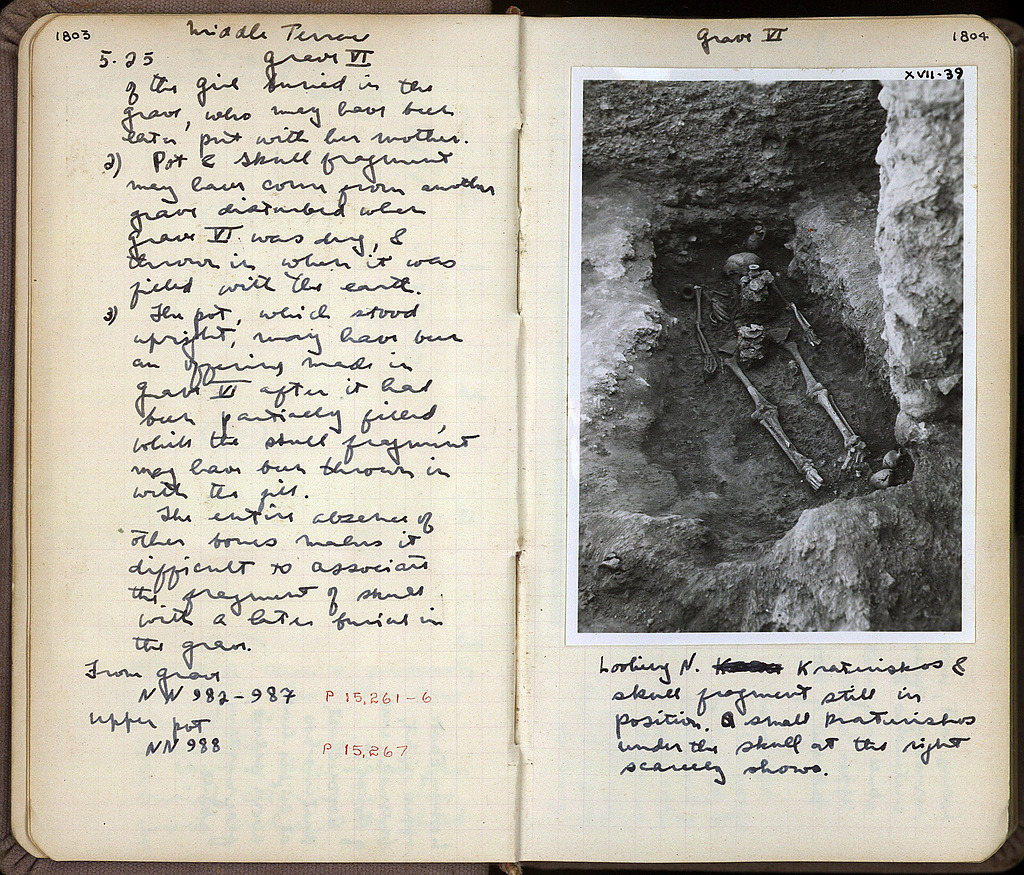 1803
Middle Terrace
5.25 Grave VI
of the girl buried in the
grave, who may have been
later put with her mother.
2) Pot & skull fragment
may have come from another
grave disturbed when
grave VI was dug, &
thrown in when it was
filled with the earth.
3) The pot, which stood
upright, may have been
an offering made in
grave VI after it had
been partially filled,
while the skull fragment
may have been thrown in
with the fill.
The entire absence of
other bones makes it
difficult to associate
the fragment of skull
with a later burial in
the grave.
From grave
NN 982-987 P 15,261-6
Upper pot
NN 988 P 15,267
Grave VI
1804
XVII-39
Looking N. Krateriskos &
skull fragment still in
position. A small krateriskos
under the skull at the right
scarcely shows.